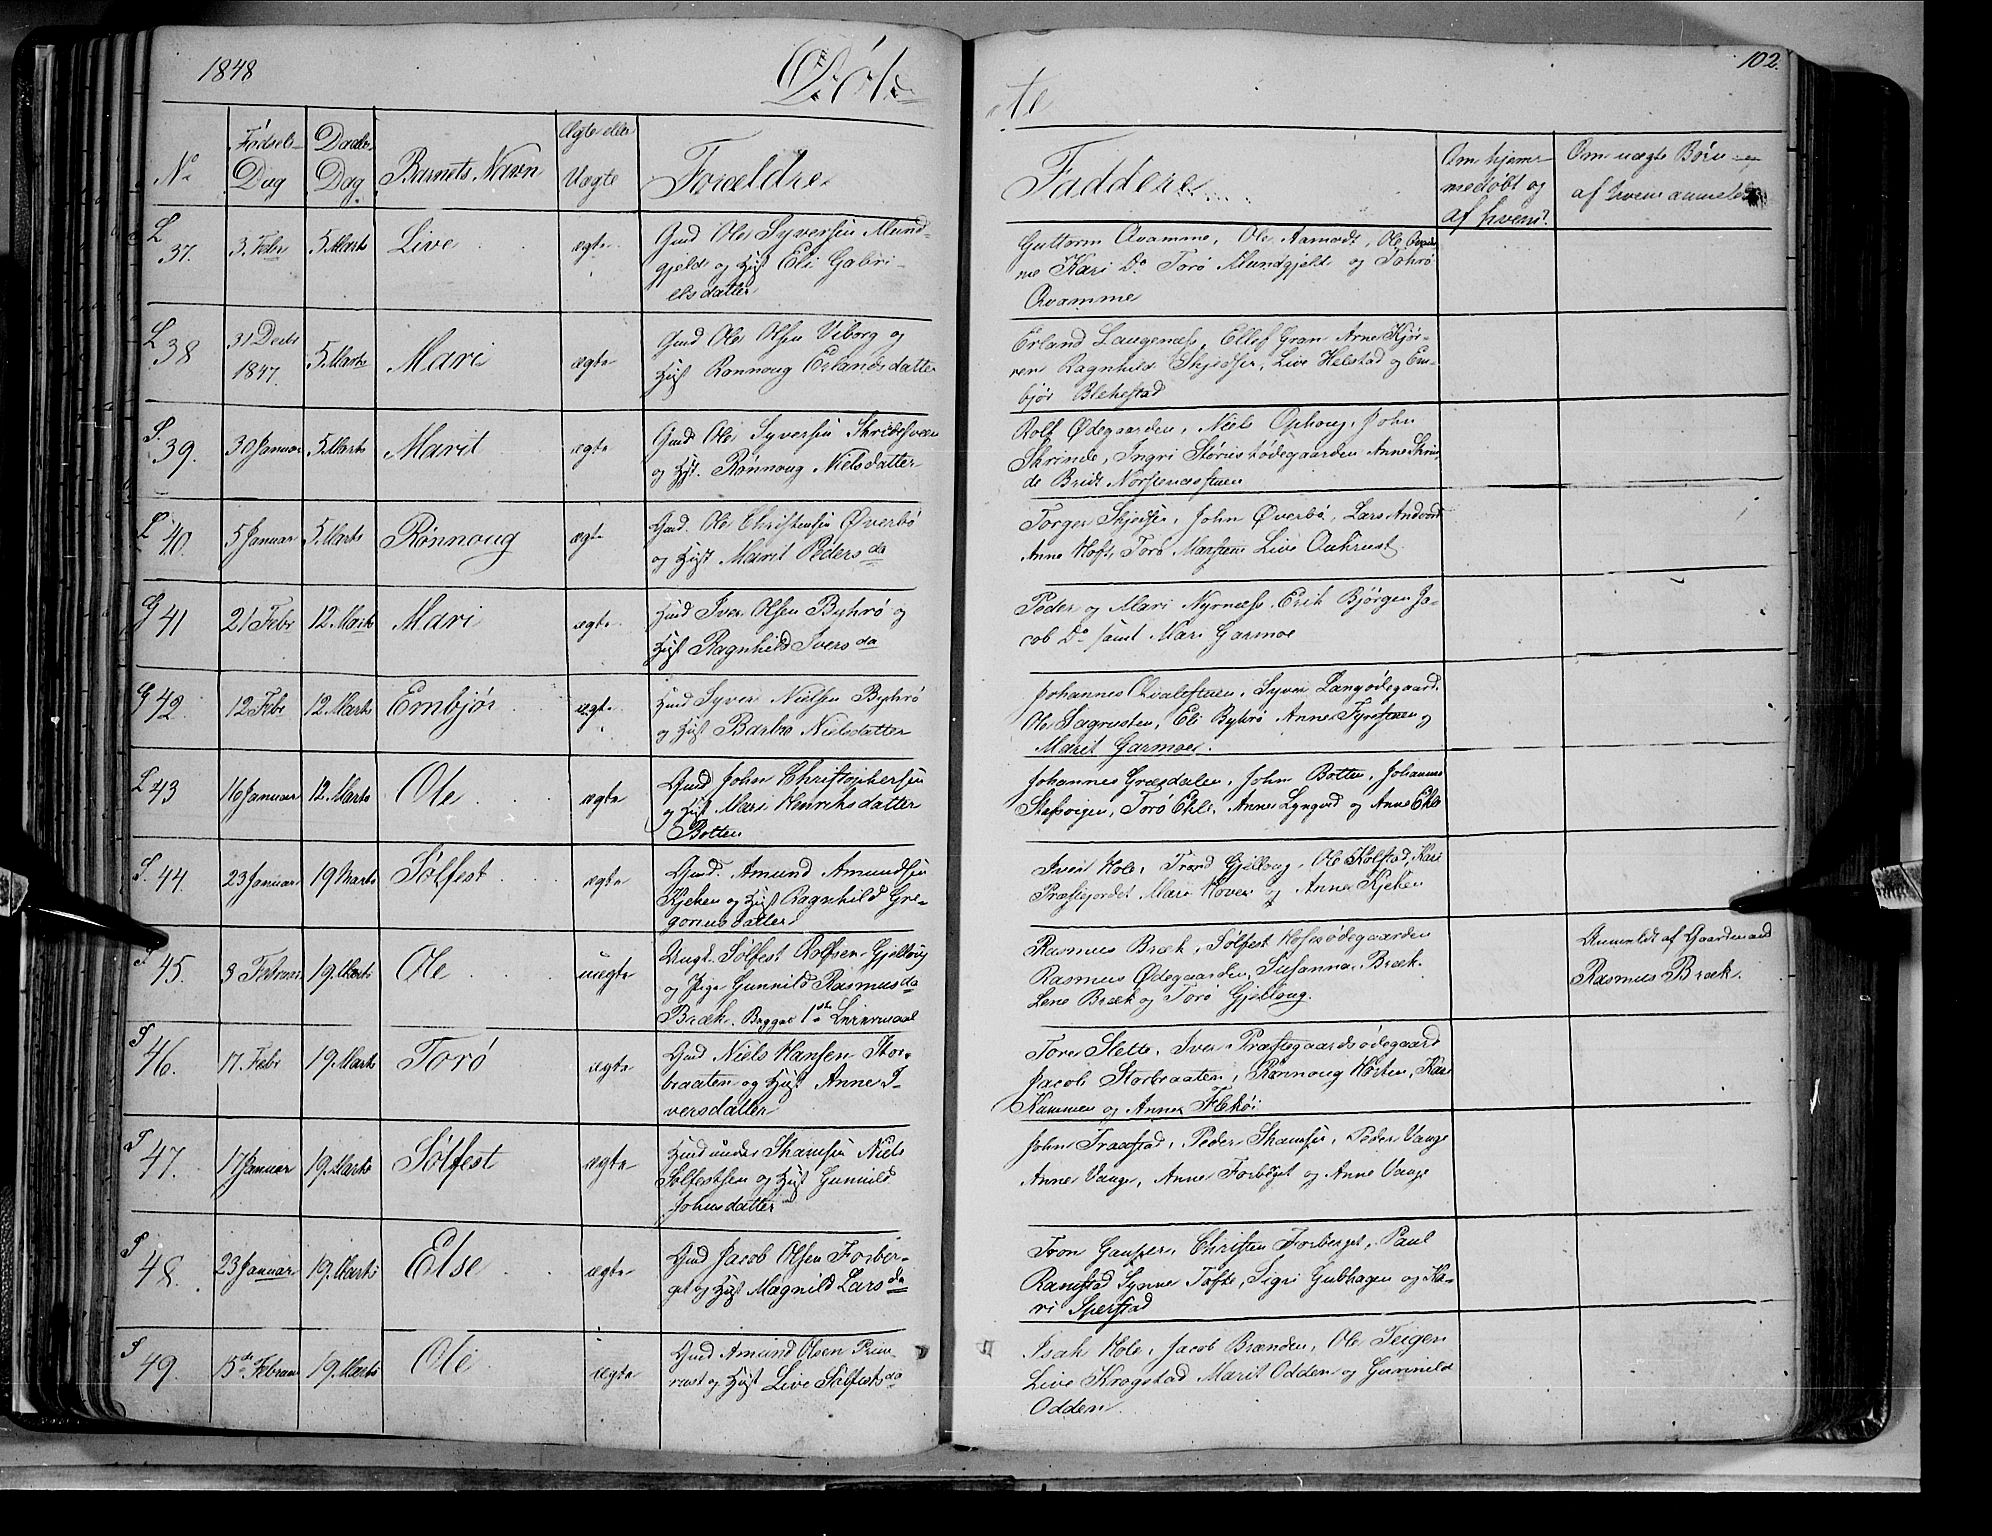 1848
Døbte
102.
No
Fødsels-
Dag
Daabs-
Dag
Barnets Navn
Ægte eller
Uægte
Forældre
Faddere
Om hjem-
medøbt og
af hvem?
Om uægte Børn
af hvem anmeldt
L 37.
3 Febr
5 Marts
Live
ægte
Gmd Ole Syversen Mund-
gjeld og Hust Eli Gabri-
elsdatter
Guttorm Qvamme, Ole Aamodt, Ole Qvam-
me Kari Do Torø Mundgjeld og Johrø
Qvamme
L 38
31 Decbr
1847.
5 Marts
Mari
ægte
Gmd Ole Olsen Viborg og
Hust Rønnoug Erlandsdatter
Erland Laugenæss, Ellef Gran Anne Kjør-
ren Ragnhild Skjedsen, Live Helstad og Em-
bjør Blekestad
S. 39.
30 Januar
5 Marts
Marit
ægte
Gmd Ole Syversen Skridesveen
og Hust. Rønnoug Nielsdatter
Rolf Ødegaarden, Niels Ophoug, John
Skrinde, Ingri Ødegaarden Anne Skrin-
de Bridt
L 40.
5 Januar
5 Marts
Rønnoug
ægte
Gmd. Ole Christensen Øverbø
og Hust Marit Peders da
Torger Skjedser, John Øverbø, Lars Andvord
Anne Hoft, Torø Live Aukrust
G 41
21 Febr
12. Marts
Mari
ægte
Hmd Iver Olsen Byhrø og
Hust Ragnhild Ivers da
Peder og Mari Nyrnæss Erik Bjørgen Ja-
cob Do samt Mari Garmoe
G 42.
12 Febr
12. Marts
Embjør
ægte
Hmd Syver Nielsen Byhrø
og Hust Barbro Nielsdatter
Johannes Syver Langødegaard.
Ole Sagrusten, Eli Byhrø Anne og
Marit Garmoe.
L 43
16 Januar
12. Marts
Ole
ægte
Gmd John Christophersen
og Hust Mari Henriksdatter
Botten
Johannes Græsdalen, John Botten, Johannes
Torø Ekle, Anne Lyngved og Anne Ekle
S. 44.
23 Januar
19 Marts
Sølfest
ægte
Gmd. Amund Amundsen
Kjeken og Hust Ragnhild Gre-
goriusdatter
Iver Hole, Trond Gjelloug, Ole Kolstad, Kari
Præstjordet Mari Hoven og Anne Kjeken
S 45.
3 Februar
19. Marts
Ole
uægte
Ungk. Sølfest Rolfsen Gjelloug
og Pige Gunnild Rasmus da
Bræk. Begges 1ste Leiermaal
Rasmus Bræk, Sølfest Hofesødegaarden
Rasmus Ødegaarden, Susanna Bræk.
Lene Bræk og Torø Gjelloug.
Anmeldt af Gaardmand
Rasmus Bræk.
S 46.
17. Febr
19. Marts
Torø
ægte
Gmd Niels Hansen Stor-
braaten og Hust Anne I-
versdatter
Tore Slette, Iver Præstegaardsødegaard
Jacob Storbraaten, Rønnoug Kari
og Anne Flekøi
S 47.
17 Januar
19. Marts
Sølfest
ægte
Hmd under Skamsen Niels
Sølfestsen og Hust Gunnild
Johnsdatter
John Traastad, Peder Skamsen, Peder Vange
Anne Vange, Anne Forberget og Anne Vange
S 48.
23 Januar
19. Marts
Else
ægte
Gmd Jacob Olsen Forber-
get og Hust Magnild Lars da
Tron Gausper, Christen Forberget, Paul
Ramstad Synne Tofte, Sigri Gubhagen og Ka-
ri Sperstad
S 49.
15de Februar
19. Marts
Ole
ægte
Gmd Amund Olsen Prim-
rust og Hust Live Sølfests da
Isak Hole, Jacob Brænden, Ole Teigen
Live Krogstad Marit Odden og Gunnild
Odden.